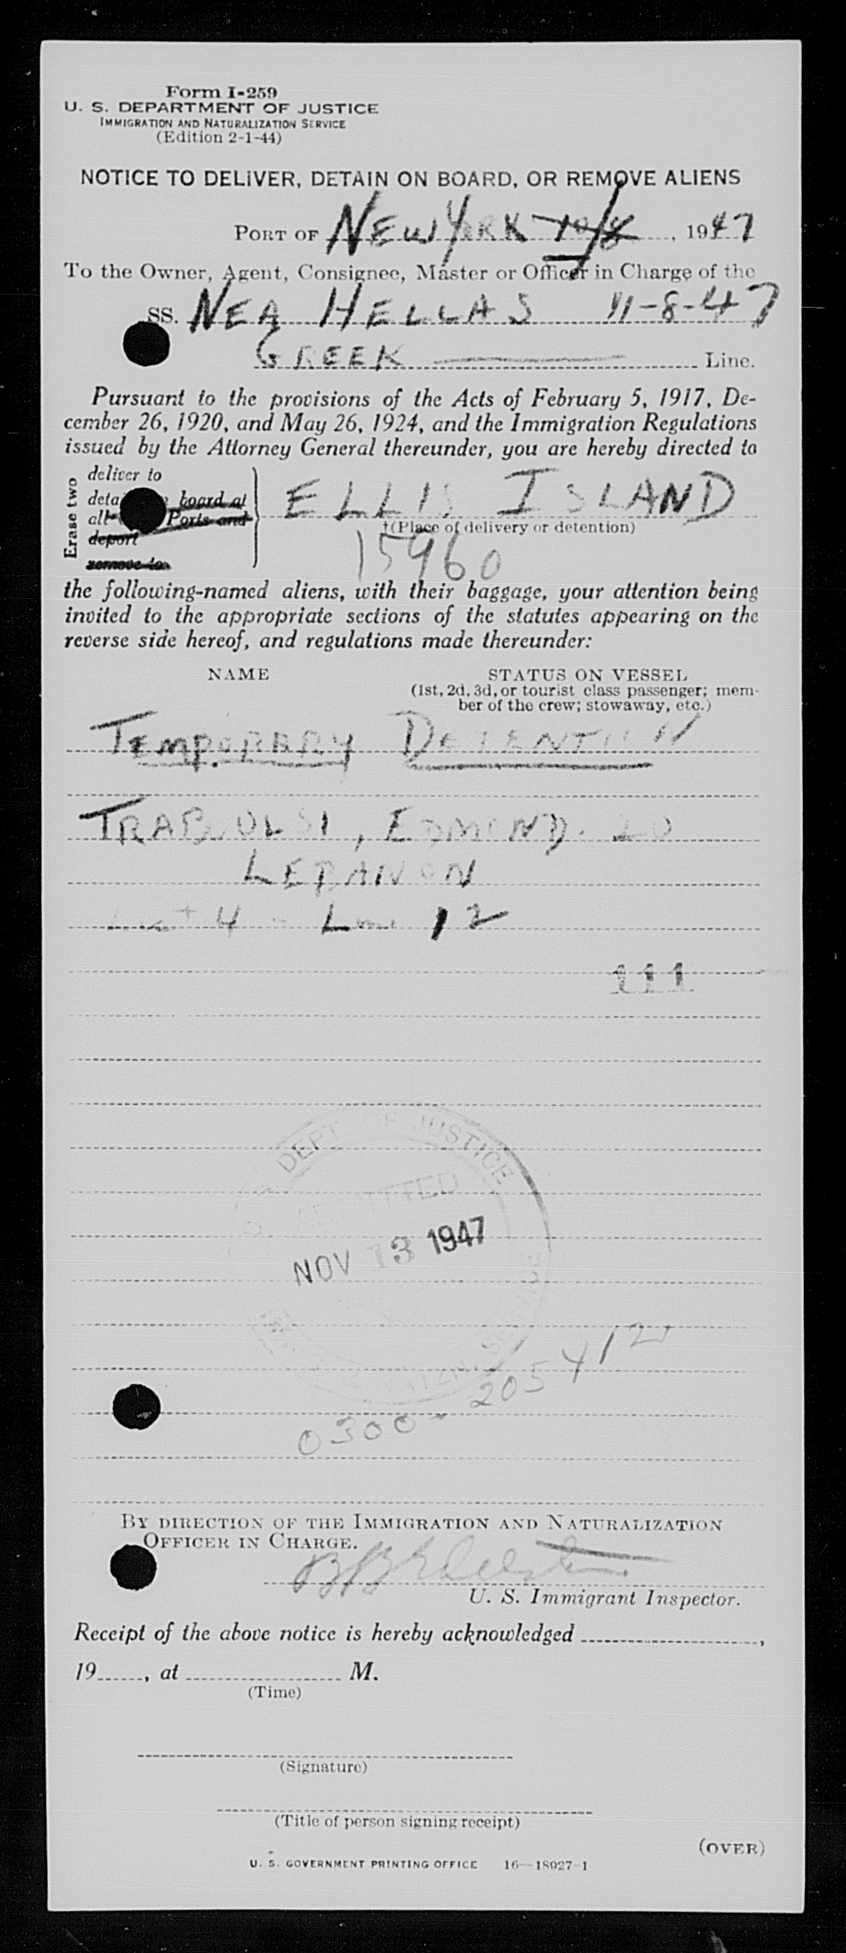 Form I-259
U. S. DEPARTMENT OF JUSTICE
IMMIGRATION AND NATURALIZATION SERVICE
(Edition 2-1-44)
NOTICE TO DELIVER, DETAIN ON BOARD, OR REMOVE ALIENS
PORT OF NEW YORK 10/8, 1947
To the Owner, Agent, Consignee, Master or Officer in Charge of the
SS. NEA HELLAS 11-8-47
GREEK Line.
Pursuant to the provisions of the Acts of February 5, 1917, De-
cember 26, 1920, and May 26, 1924, and the Immigration Regulations
issued by the Attorney General thereunder, you are hereby directed to
Erase two
deliver to
board at
all Ports and
deport
remove to
ELLIS ISLAND
†(Place of delivery or detention)
15960
the following-named aliens, with their baggage, your attention being
invited to the appropriate sections of the statutes appearing on the
reverse side hereof, and regulations made thereunder:
NAME STATUS ON VESSEL
(1st, 2d, 3d, or tourist class passenger; mem-
ber of the crew; stowaway, etc.)
TEMPORARY DETENTION
TRABOULSI, EDMOND. 20
LEBANON
List 4 - Line 12
111
DEPT OF JUSTICE
ADMITTED
NOV 13 1947
0300- 205412
BY DIRECTION OF THE IMMIGRATION AND NATURALIZATION
OFFICER IN CHARGE.
U. S. Immigrant Inspector.
Receipt of the above notice is hereby acknowledged ,
19 , at M.
(Time)
(Signature)
(Title of person signing receipt)
(OVER)
U. S. GOVERNMENT PRINTING OFFICE 16—18027-1